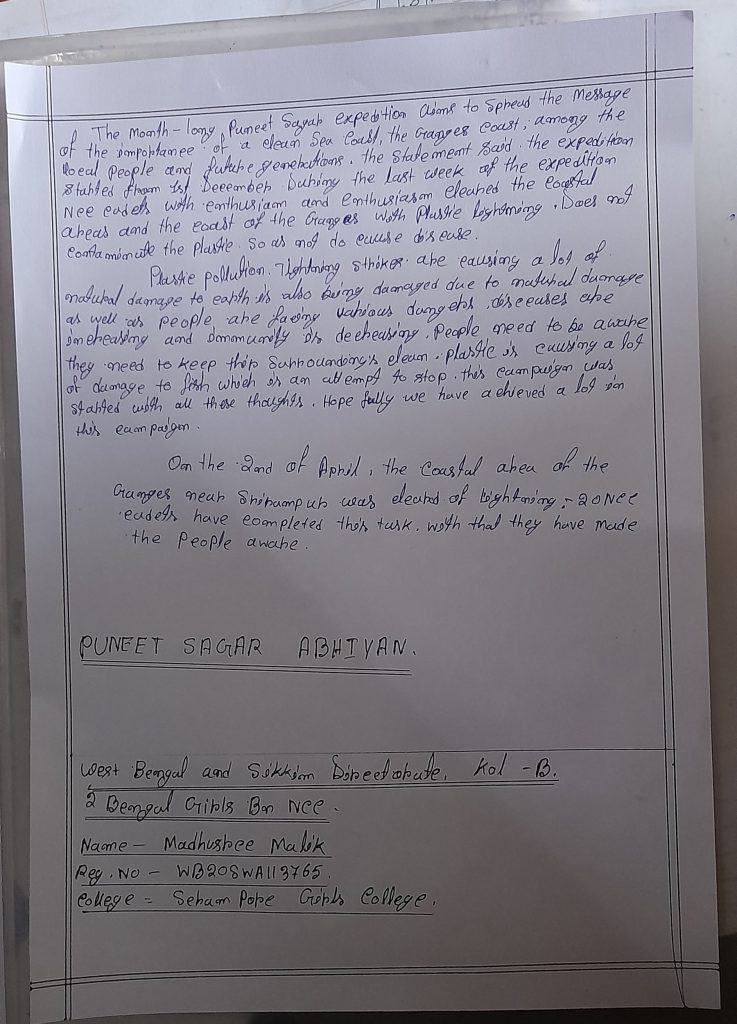 The Month-long, Puneet Sagar expedition aims to spread the Message
of the importance of a clean Sea Coast, the Ganges coast, among the
local people and future generations. the statement said. the expedition
started from 1st December During the last week of the expedition
Ncc cadets with enthusiasm and enthusiasm cleared the coastal
areas and the coast of the Ganges with plastic lightning. Does not
contaminate the plastic. So as not do cause disease.
Plastic pollution. Lightning strikes are causing a lot of
natural damage to earth is also being damaged due to natural damage
as well as people are facing various dangers, diseases are
increasing and immunity is decreasing. People need to be aware
they need to keep their surroundings clean. plastic is causing a lot
of damage to fish which is an attempt to stop. this campaign was
started with all these thoughts. Hope fully we have achieved a lot in
this campaign.
On the 2nd of April, the coastal area of the
Ganges near Shirampur was cleared of lightning. 20 Ncc
cadets have completed this task. with that they have made
the people aware.
PUNEET SAGAR ABHIYAN.
West Bengal and Sikkim Directorate, Kol - B.
2 Bengal Girls Bn Ncc.
Name - Madhushree Malik
Reg. No - WB20SWA113765.
College = Seham Pore Girls College.